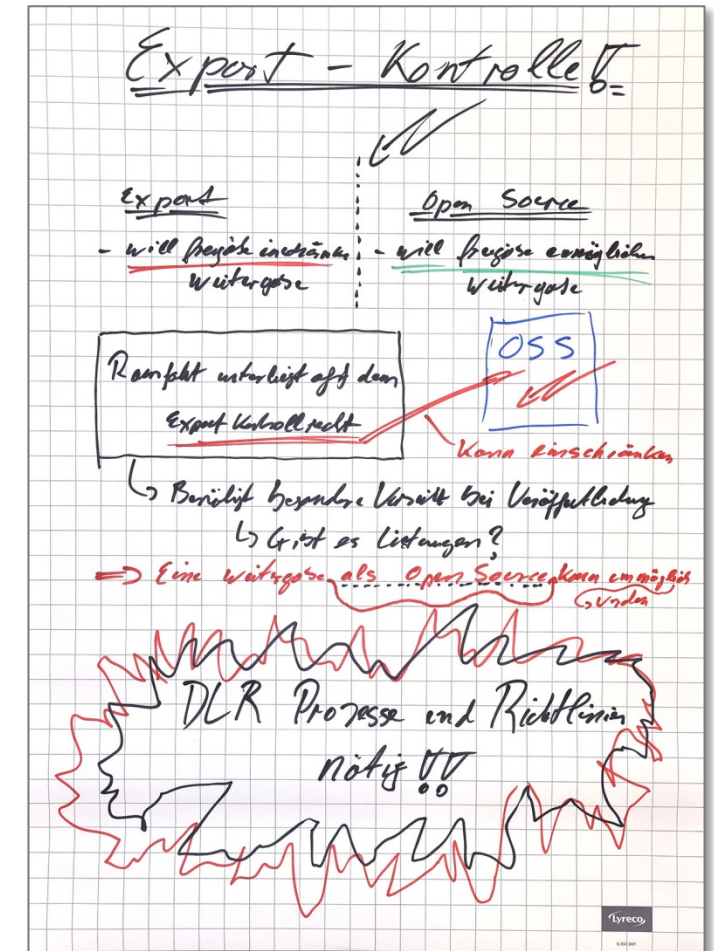 Export - Kontrolle!!
Export
- will freigabe einschränken
Weitergabe
Open Source
- will freigabe ermöglichen
Weitergabe
Raumfahrt unterliegt oft dem
Export Kontrollrecht
OSS
Kann einschränken
↳ Benötigt besondere Vorsicht bei Veröffentlichung
↳ Gibt es Listungen?
=> Eine weitergabe als Open Source kann unmöglich
↳ werden
DLR Prozesse und Richtlinien
nötig!!
Lyreco